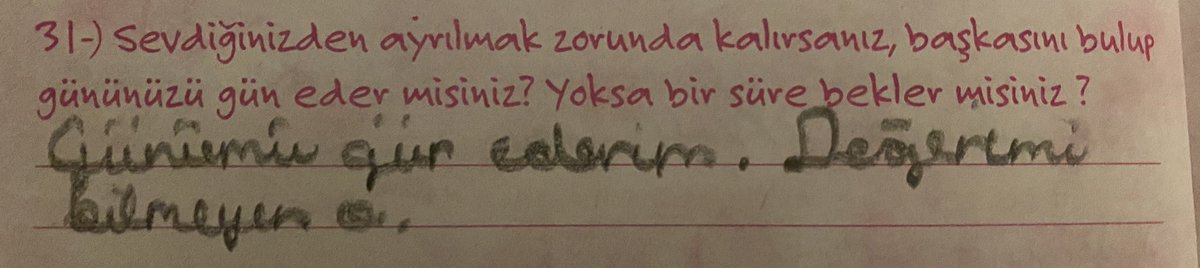 31-) Sevdiğinizden ayrılmak zorunda kalırsanız, başkasını bulup
gününüzü gün eder misiniz? Yoksa bir süre bekler misiniz?
Günümü gün ederim. Değerimi
bilmeyen o.